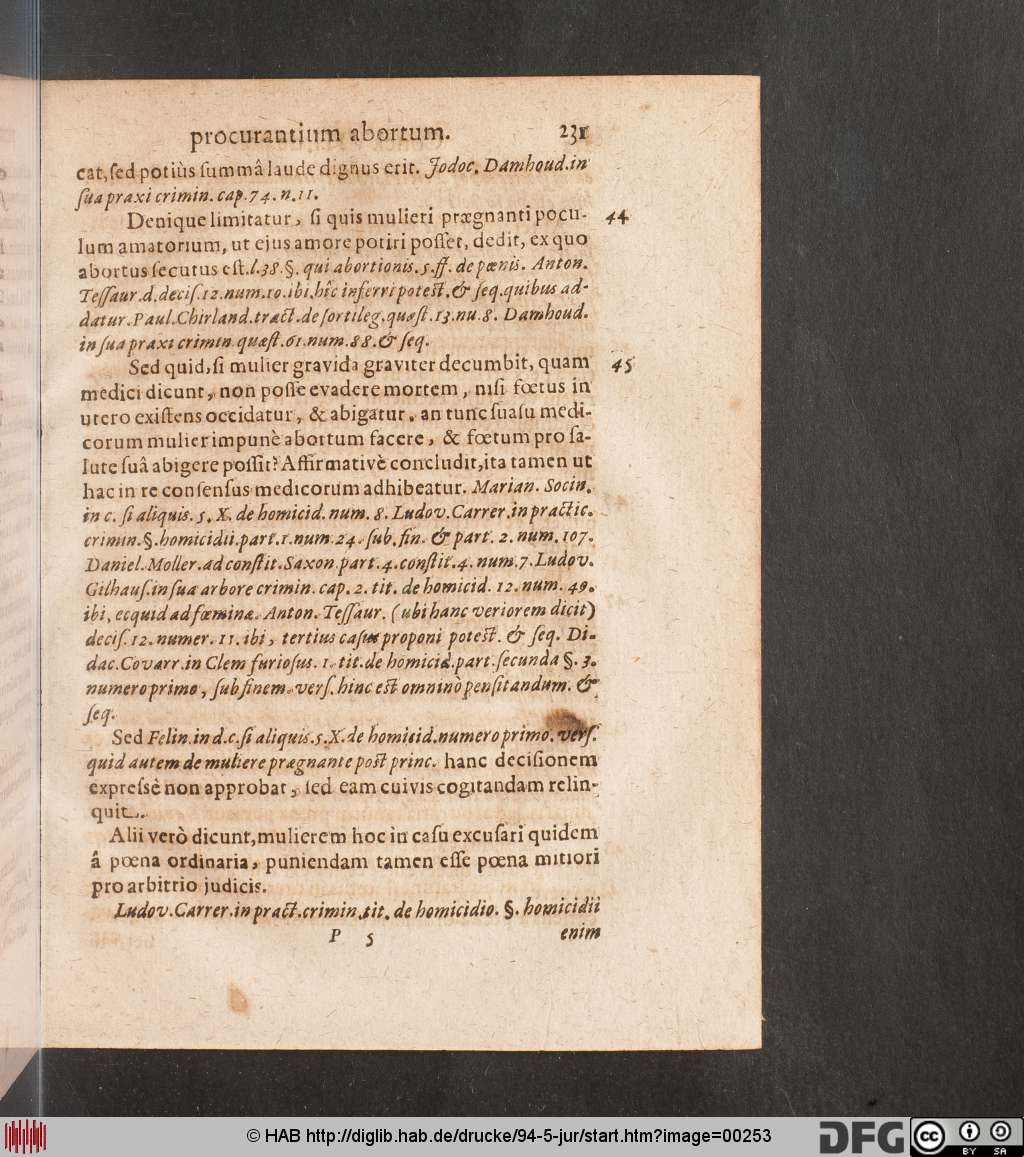 procurantium abortum. 231
cat, sed potiùs summâ laude dignus erit. Jodoc. Damhoud. in
sua praxi crimin. cap. 74. n. 11.
Denique limitatur, si quis mulieri prægnanti pocu- 44
lum amatorium, ut ejus amore potiri posset, dedit, ex quo
abortus secutus est. l. 38. §. qui abortionis. 5. ff. de pœnis. Anton.
Tessaur. d. decis. 12. num. 10. ibi, hîc inferri potest. & seq. quibus ad-
datur. Paul. Chirland. tract. de sortileg. quæst. 13. nu. 8. Damhoud.
in sua praxi crimin. quæst. 61. num. 88. & seq.
Sed quid, si mulier gravida graviter decumbit, quam 45
medici dicunt, non posse evadere mortem, nisi fœtus in
utero existens occidatur, & abigatur. an tunc suasu medi-
corum mulier impunè abortum facere, & fœtum pro sa-
lute suâ abigere possit? Affirmativè concludit, ita tamen ut
hac in re consensus medicorum adhibeatur. Marian. Socin.
in c. si aliquis. 5. X. de homicid. num. 8. Ludov. Carrer. in practic.
crimin. §. homicidii. part. 1. num. 24. sub. fin. & part. 2. num. 107.
Daniel. Moller. ad constit. Saxon. part. 4. constit. 4. num. 7. Ludov.
Gilhaus. in sua arbore crimin. cap. 2. tit. de homicid. 12. num. 49.
ibi, ecquid ad fœminæ. Anton. Tessaur. (ubi hanc veriorem dicit)
decis. 12. numer. 11. ibi, tertius casus proponi potest. & seq. Di-
dac. Covarr. in Clem furiosus. 1. tit. de homicid. part. secunda §. 3.
numero primo, sub finem. vers. hinc est omninò pensitandum. &
seq.
Sed Felin. in d. c. si aliquis. 5. X. de homicid. numero primo. vers.
quid autem de muliere prægnante post princ. hanc decisionem
expressè non approbat, sed eam cuivis cogitandam relin-
quit.
Alii verò dicunt, mulierem hoc in casu excusari quidem
â pœna ordinaria, puniendam tamen esse pœna mitiori
pro arbitrio judicis.
Ludov. Carrer. in pract. crimin. tit. de homicidio. §. homicidii
P 5 enim
© HAB http://diglib.hab.de/drucke/94-5-jur/start.htm?image=00253
DFG
cc BY SA